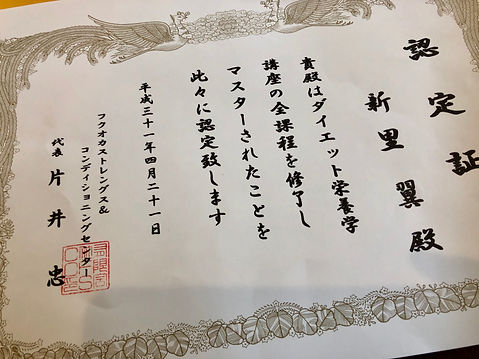 認定証
新里翼殿
貴殿はダイエット栄養学
講座の全課程を修了し
マスターされたことを
此々に認定致します
平成三十一年四月二十一日
フクオカストレングス&
コンディショニングセンター
代表 片井 忠